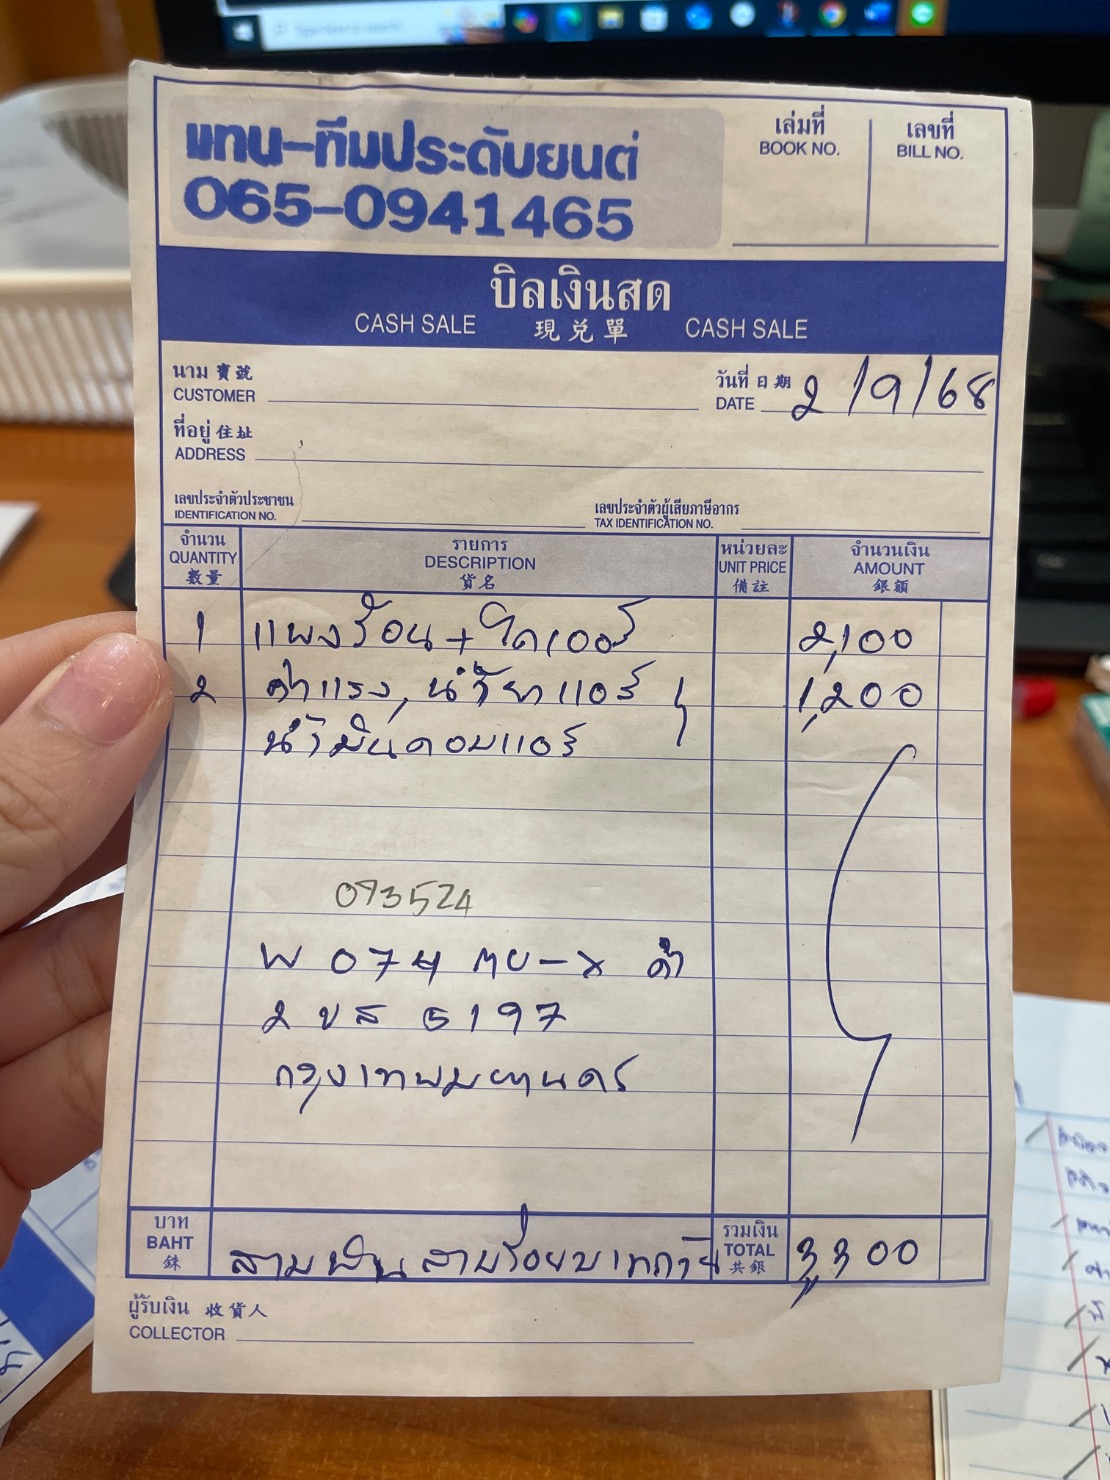 แทน-ทีมประดับยนต์
065-0941465
เล่มที่
BOOK NO.
เลขที่
BILL NO.
บิลเงินสด
CASH SALE 現兑單 CASH SALE
นาม 寶號
CUSTOMER
วันที่ 日期
DATE 2/9/68
ที่อยู่ 住址
ADDRESS
เลขประจำตัวประชาชน
IDENTIFICATION NO.
เลขประจำตัวผู้เสียภาษีอากร
TAX IDENTIFICATION NO.
จำนวน
QUANTITY
數量
รายการ
DESCRIPTION
貨名
หน่วยละ
UNIT PRICE
備註
จำนวนเงิน
AMOUNT
銀額
1 แผงร้อน + ไดเออร์ 2,100
2 ค่าแรง, น้ำยาแอร์ 1,200
น้ำมันคอมแอร์
093524
พ 074 MU-X ดำ
2 ขส 5197
กรุงเทพมหานคร
บาท
BAHT
銖
สามพันสามร้อยบาทถ้วน
รวมเงิน
TOTAL
共銀
3,300
ผู้รับเงิน 收貨人
COLLECTOR